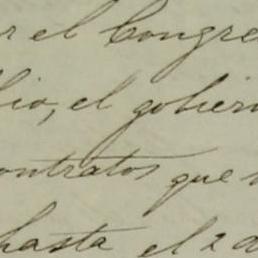 el Congre
el gobier
contratos que
hasta el 2 d